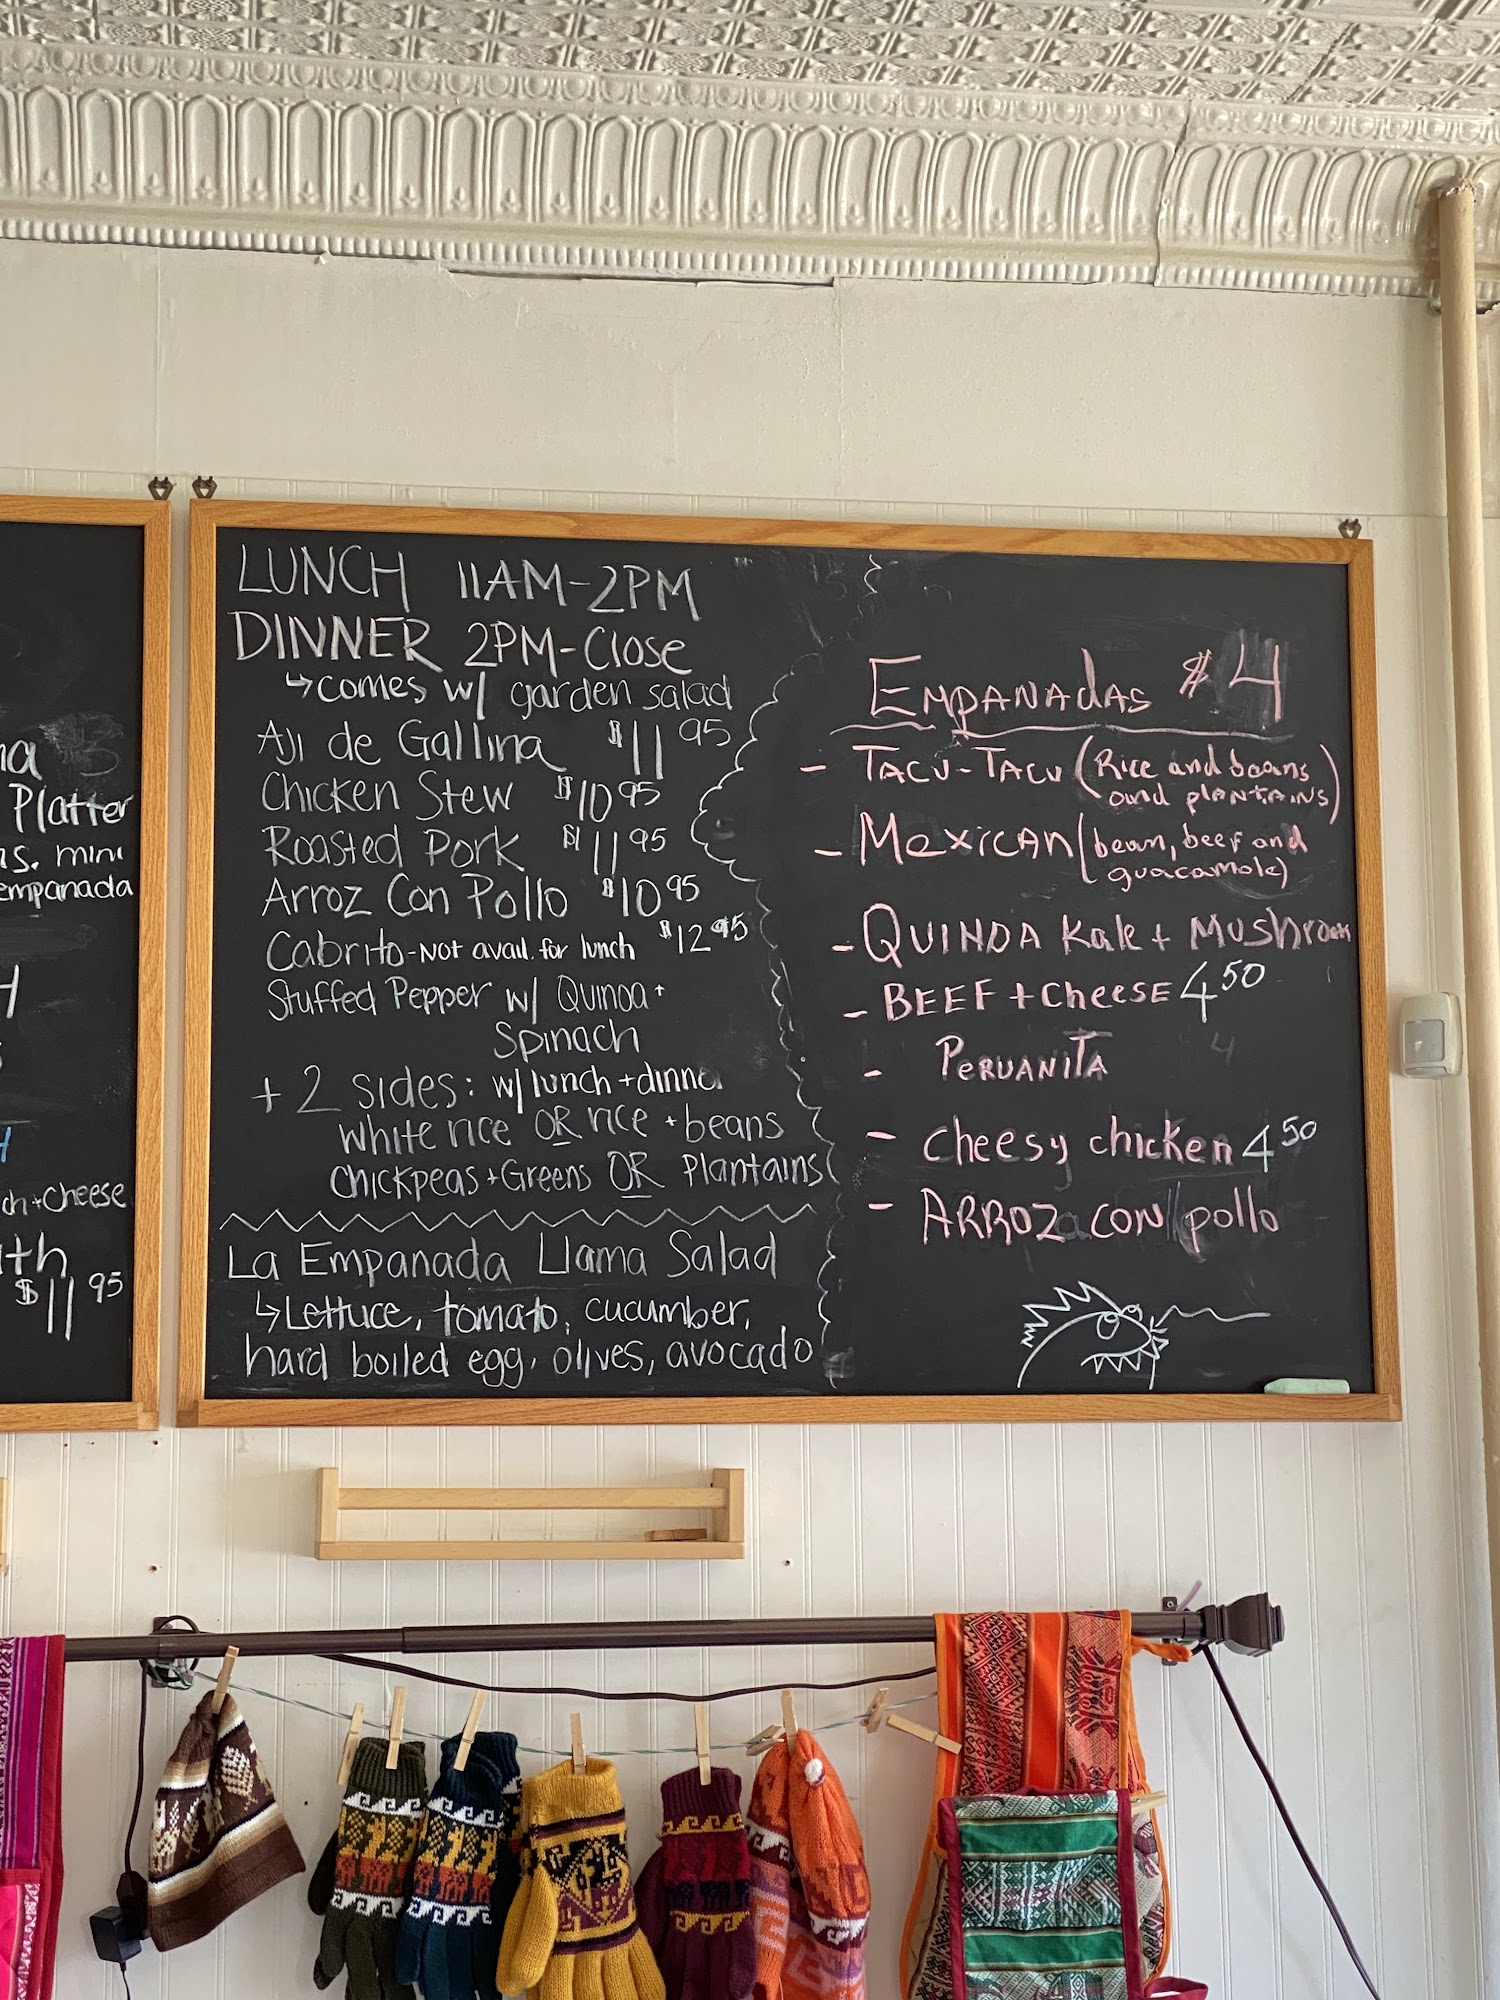 Platter
mini
empanada
Cheese
$11 95
LUNCH 11AM-2PM
DINNER 2PM-Close
↳comes w/ garden salad
Aji de Gallina $11 95
Chicken Stew $10 95
Roasted Pork $11 95
Arroz Con Pollo $10 95
Cabrito-Not avail. for lunch $12 95
Stuffed Pepper w/ Quinoa+
Spinach
+ 2 sides: w/ lunch + dinner
white rice OR rice + beans
chickpeas + Greens OR Plantains
La Empanada Llama Salad
↳Lettuce, tomato, cucumber,
hard boiled egg, olives, avocado
EMPANAdAS $4
- TACU-TACU (Rice and beans
and PLANTAINS)
- MexicAN (bean, beef and
guacamole)
- QUINOA Kale + MUShroom
- BEEF + cheese 4 50
- PERUANITA
- cheesy chicken 4 50
- ARROZ CON pollo